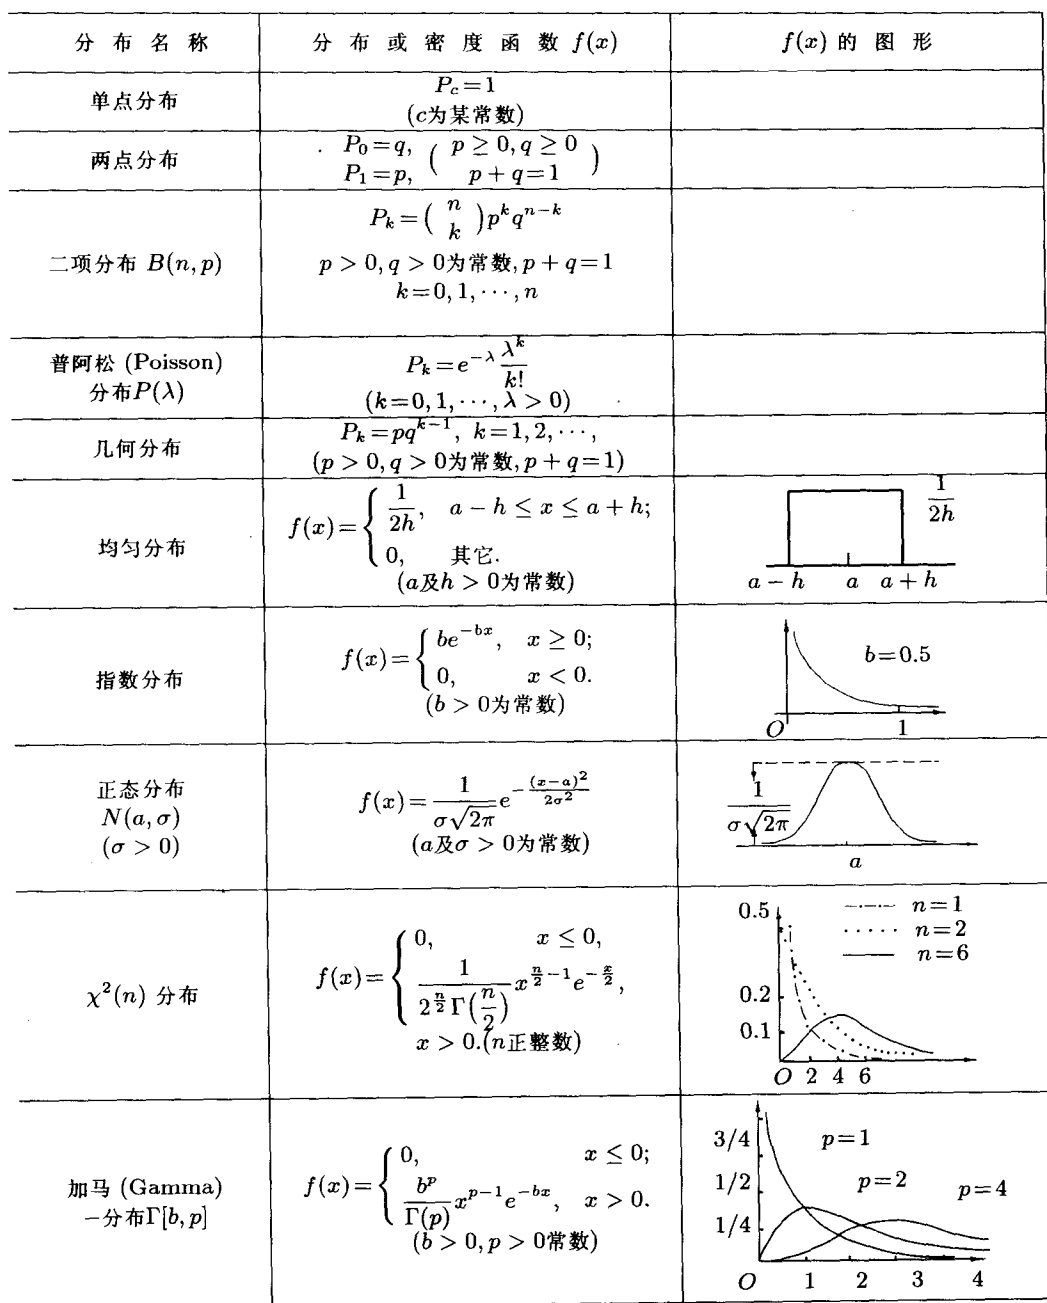 分布名称 分布或密度函数 f(x) f(x) 的图形
单点分布
P_c=1
(c为某常数)
两点分布
P_0=q, ( p ≥ 0, q ≥ 0
P_1=p, p + q=1 )
二项分布 B(n, p)
P_k=( n k )p^k q^{n-k}
p > 0, q > 0为常数, p + q=1
k=0, 1, ···, n
普阿松 (Poisson)
分布P(λ)
P_k=e^{-λ} λ^k/k!
(k=0, 1, ···, λ > 0)
几何分布
P_k=pq^{k-1}, k=1, 2, ···,
(p > 0, q > 0为常数, p + q=1)
均匀分布
f(x)={ 1/2h, a − h ≤ x ≤ a + h;
0, 其它.
(a及h > 0为常数)
1/2h
a − h a a + h
指数分布
f(x)={ be^{-bx}, x ≥ 0;
0, x < 0.
(b > 0为常数)
b=0.5
O 1
正态分布
N(a, σ)
(σ > 0)
f(x)= 1/(σ√2π) e^{-(x-a)^2/2σ^2}
(a及σ > 0为常数)
1/(σ√2π)
a
χ^2(n) 分布
f(x)={ 0, x ≤ 0,
1/(2^{n/2} Γ(n/2)) x^{n/2 −1} e^{-x/2},
x > 0.(n正整数)
0.5
n=1
n=2
n=6
0.2
0.1
O 2 4 6
加马 (Gamma)
−分布Γ[b, p]
f(x)={ 0, x ≤ 0;
b^p/Γ(p) x^{p-1} e^{-bx}, x > 0.
(b > 0, p > 0常数)
3/4 p=1
1/2 p=2 p=4
1/4
O 1 2 3 4